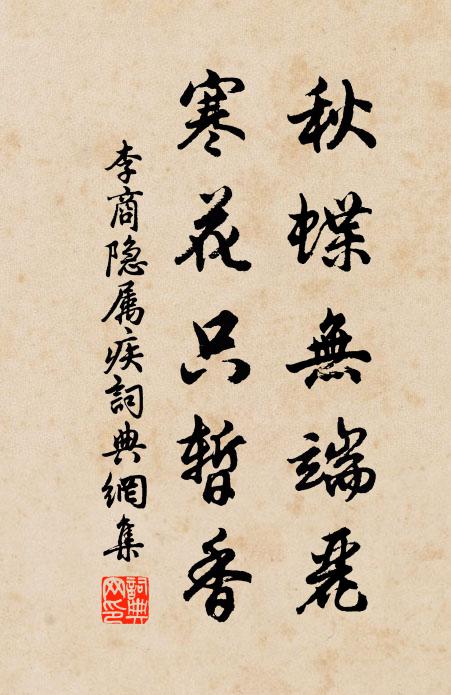 秋蝶無端麗
寒花只暫香
李商隐属疾詞典網集
詞典網印